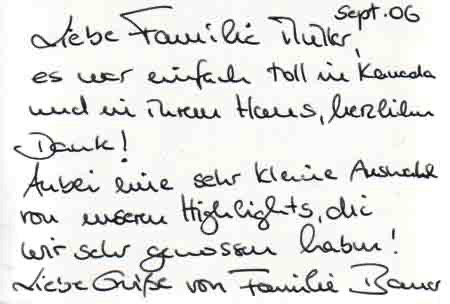 Sept. 06
Liebe Familie Müller,
es war einfach toll in Kanada
und in ihrem Haus, herzlichen
Dank!
Anbei eine sehr kleine Auswahl
von unseren Highlights, die
wir sehr genossen haben!
Liebe Grüße von Familie Bauer